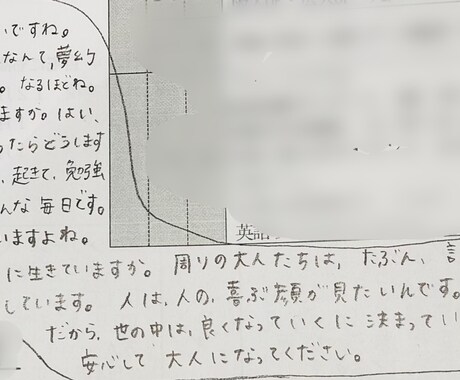 いですね。
なんて、夢幻
。なるほどね。
ますか。はい、
ったらどうします
、起きて、勉強
んな毎日です。
いますよね。
英語
に生きていますか。周りの大人たちは、たぶん、言
しています。人は、人の、喜ぶ顔が見たいんです。
だから、世の中は、良くなっていくに決まってい
安心して大人になってください。